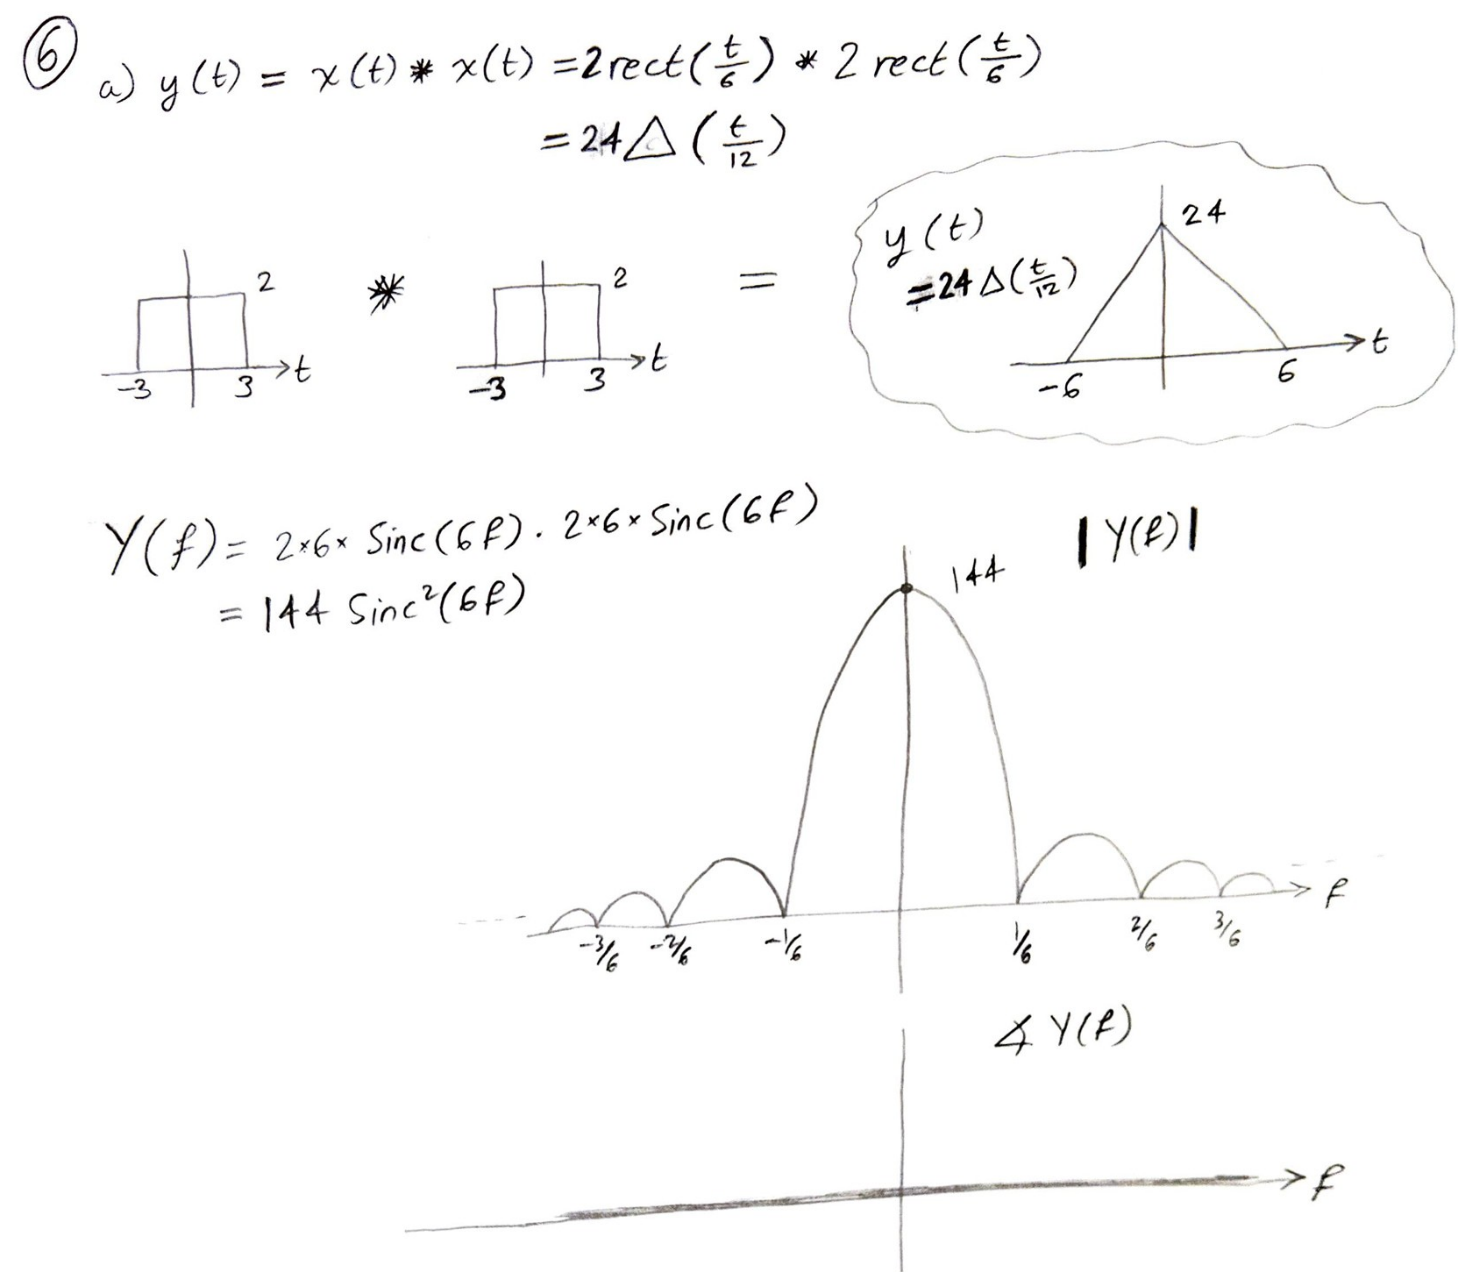 6
a) y(t) = x(t) * x(t) = 2rect(t/6) * 2 rect(t/6)
= 24 △ (t/12)
2
-3
3
t
*
2
-3
3
t
=
y(t)
= 24 △(t/12)
24
-6
6
t
Y(f) = 2×6× Sinc(6f) . 2×6× Sinc(6f)
= 144 Sinc²(6f)
|Y(f)|
144
-3/6 -2/6 -1/6 1/6 2/6 3/6 f
∡ Y(f)
f